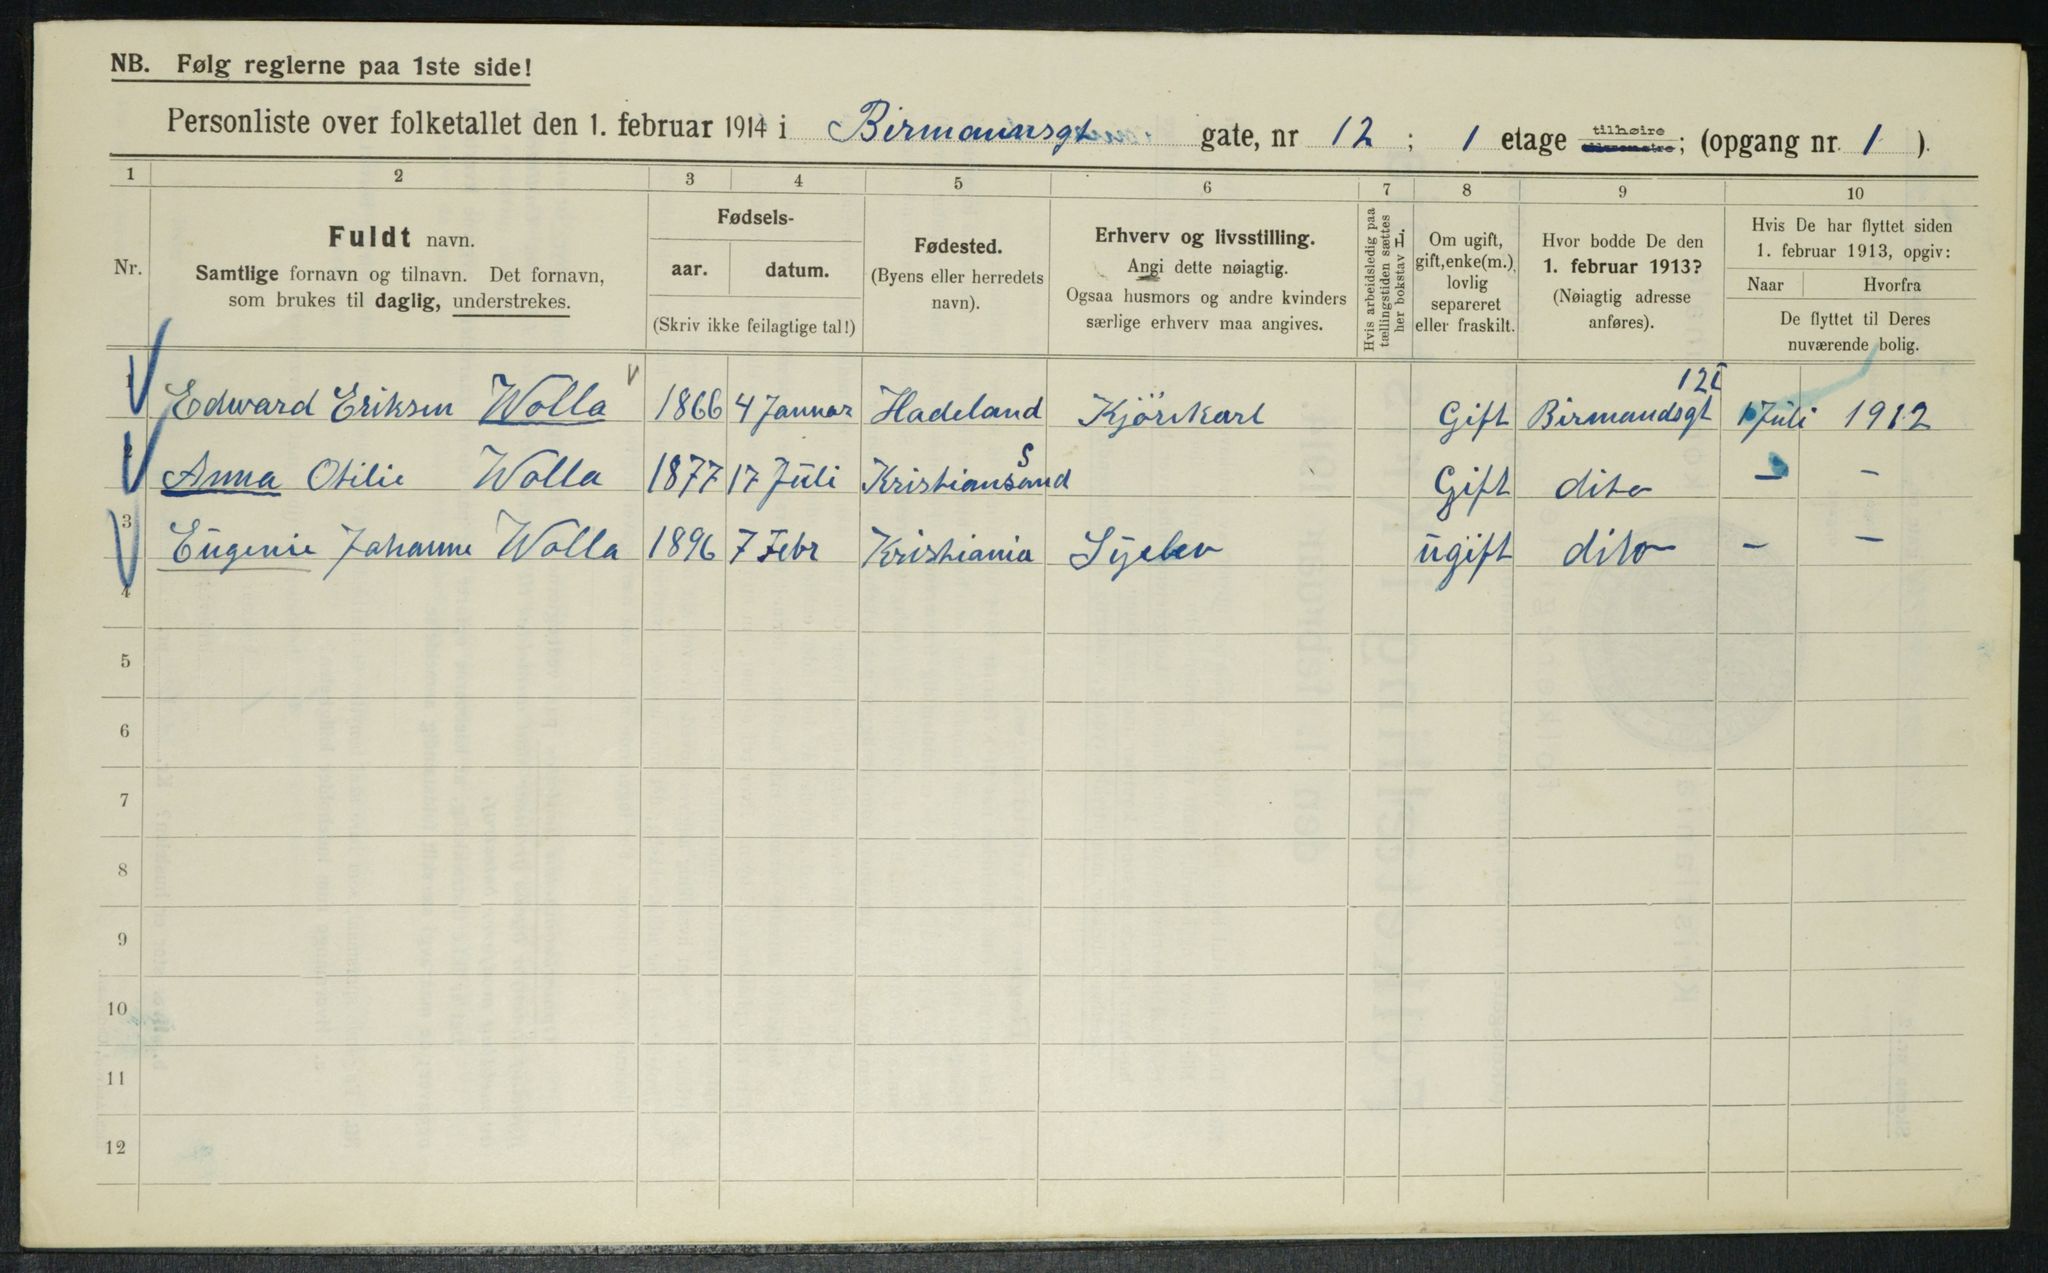 NB. Følg reglerne paa 1ste side!
Personliste over folketallet den 1. februar 1914 i Birmannsgt gate, nr 12 ; 1 etage tilhøire; (opgang nr. 1 ).
1 2 3 4 5 6 7 8 9 10
Nr.
Fuldt navn.
Samtlige fornavn og tilnavn. Det fornavn,
som brukes til daglig, understrekes.
Fødsels-
aar. datum.
(Skriv ikke feilagtige tal!)
Fødested.
(Byens eller herredets
navn).
Erhverv og livsstilling.
Angi dette nøiagtig.
Ogsaa husmors og andre kvinders
særlige erhverv maa angives.
Hvis arbeidsledig paa
tællingstiden sættes
her bokstav H.
Om ugift,
gift, enke(m.),
lovlig
separeret
eller fraskilt.
Hvor bodde De den
1. februar 1913?
(Nøiagtig adresse
anføres).
Hvis De har flyttet siden
1. februar 1913, opgiv:
Naar Hvorfra
De flyttet til Deres
nuværende bolig.
1 Edward Eriksen Wolla 1866 4 Januar Hadeland Kjörekarl Gift Birmandsgt 12 I 1 Juli 1912
2 Anna Otilie Wolla 1877 17 Juli Kristianssand Gift dito – –
3 Eugenie Johanne Wolla 1896 7 Febr Kristiania Syelev ugift dito – –
4
5
6
7
8
9
10
11
12